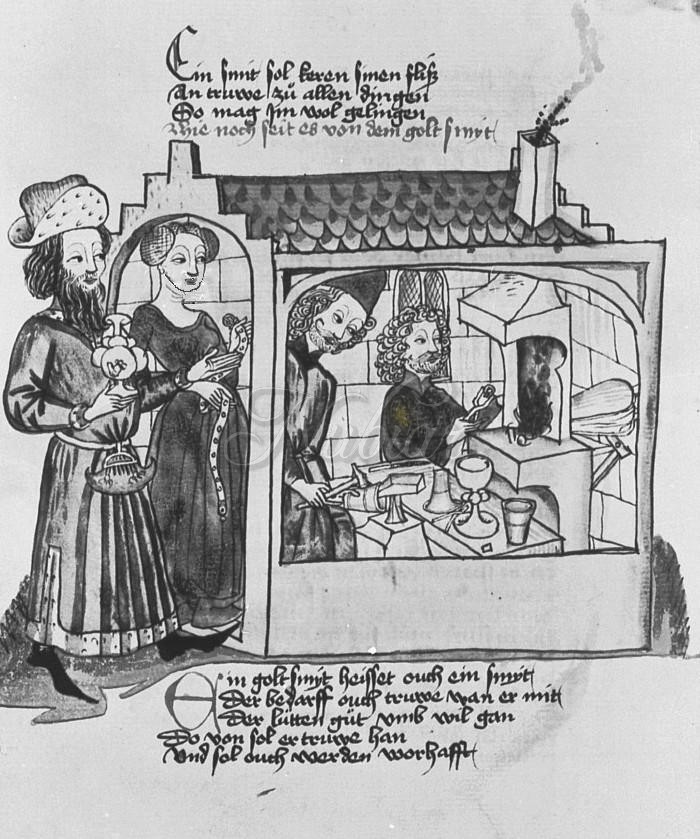 Ein smit sol keren sinen fliß
An truwe zů allen dingen
So mag Im wol gelingen
Hie noch seit es von dem golt smyt
Ein golt smyt heisset ouch ein smyt
Der bedarff ouch truwe wan er mit
Der lütten gůt vmb wil gan
Do von sol er truwe han
Und sol ouch werden worhafft